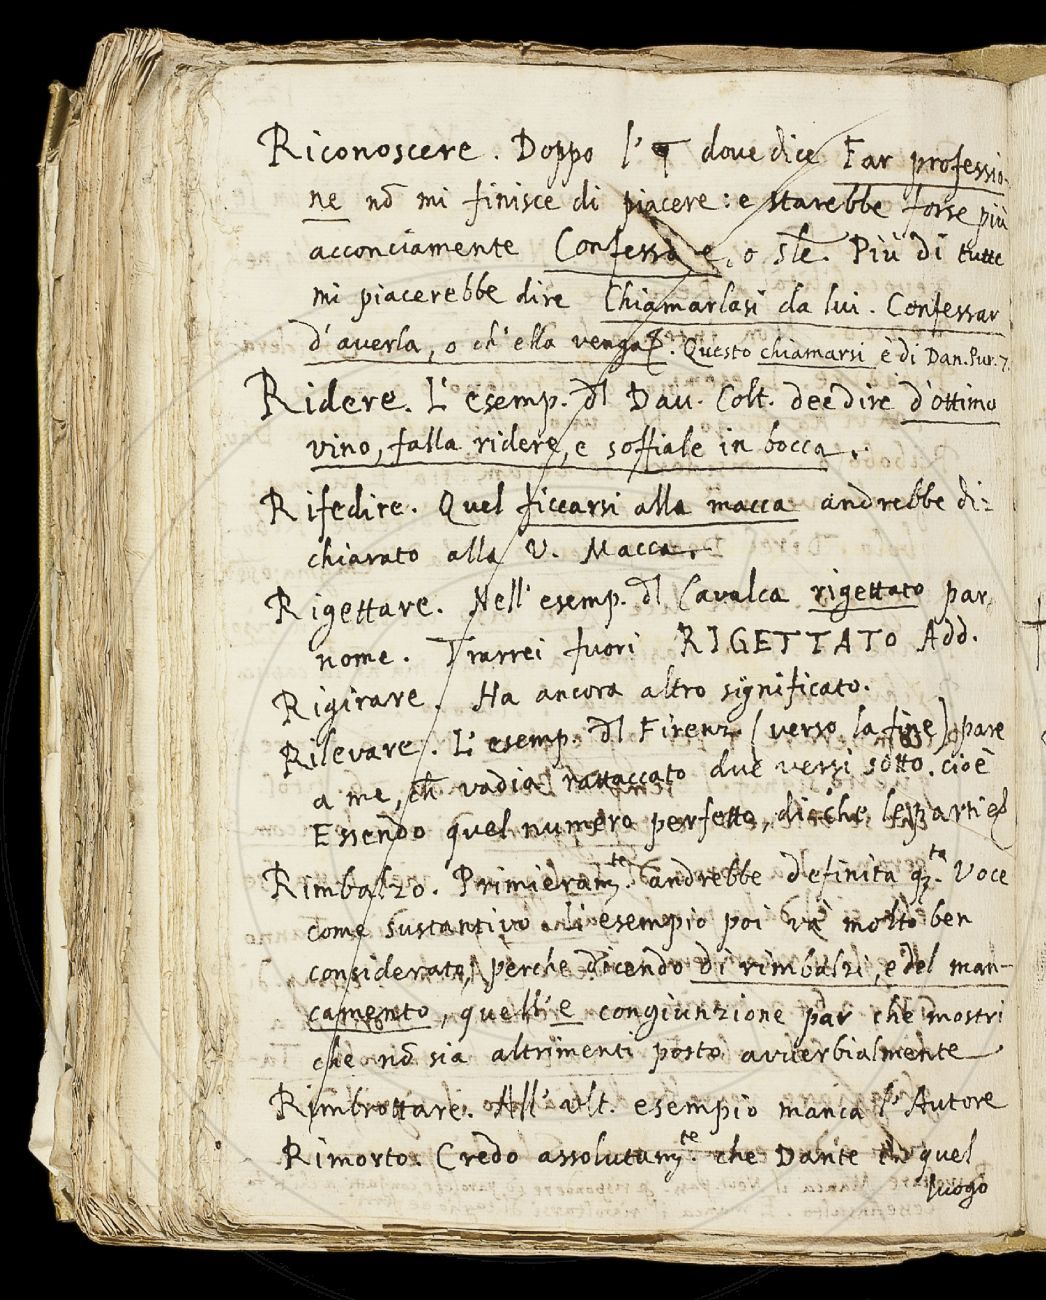 Riconoscere. Doppo l' dove dice Far professio-
ne nõ mi finisce di piacere: e starebbe forse più
acconciamente Confessa e, o sĩle. Più di tutte
mi piacerebbe dire Chiamarlasi da lui. Confessar
d'averla, o ch'ella venga &. Questo chiamarsi è di Dan. Pur. 7.
Ridere. L'esemp. dl Dav. Colt. dee dire d'ottimo
vino, falla ridere, e soffiale in bocca.
Rifedire. Quel ficcarsi alla macca andrebbe di-
chiarato alla V. Macca.
Rigettare. Nell'esemp. dl Cavalca rigettato par
nome. Trarrei fuori RIGETTATO Add.
Rigirare. Ha ancora altro significato.
Rilevare. L'esemp. dl Firenz. (verso la fine) pare
a me, ch̃ vadia rattaccato due versi sotto. cioè
Essendo quel numero perfetto, di che le parti &
Rimbalzo. Primieram.te andrebbe definita q.ta Voce
come sustantivo. L'esempio poi và molto ben
considerato, perche dicendo di rimbalzi, e del man-
camento, quell' e congiunzione par che mostri
che nõ sia altrimenti posto avverbialmente
Rimbrottare. All'ult. esempio manca l'Autore
Rimorto. Credo assolutam.te che Dante in quel
luogo